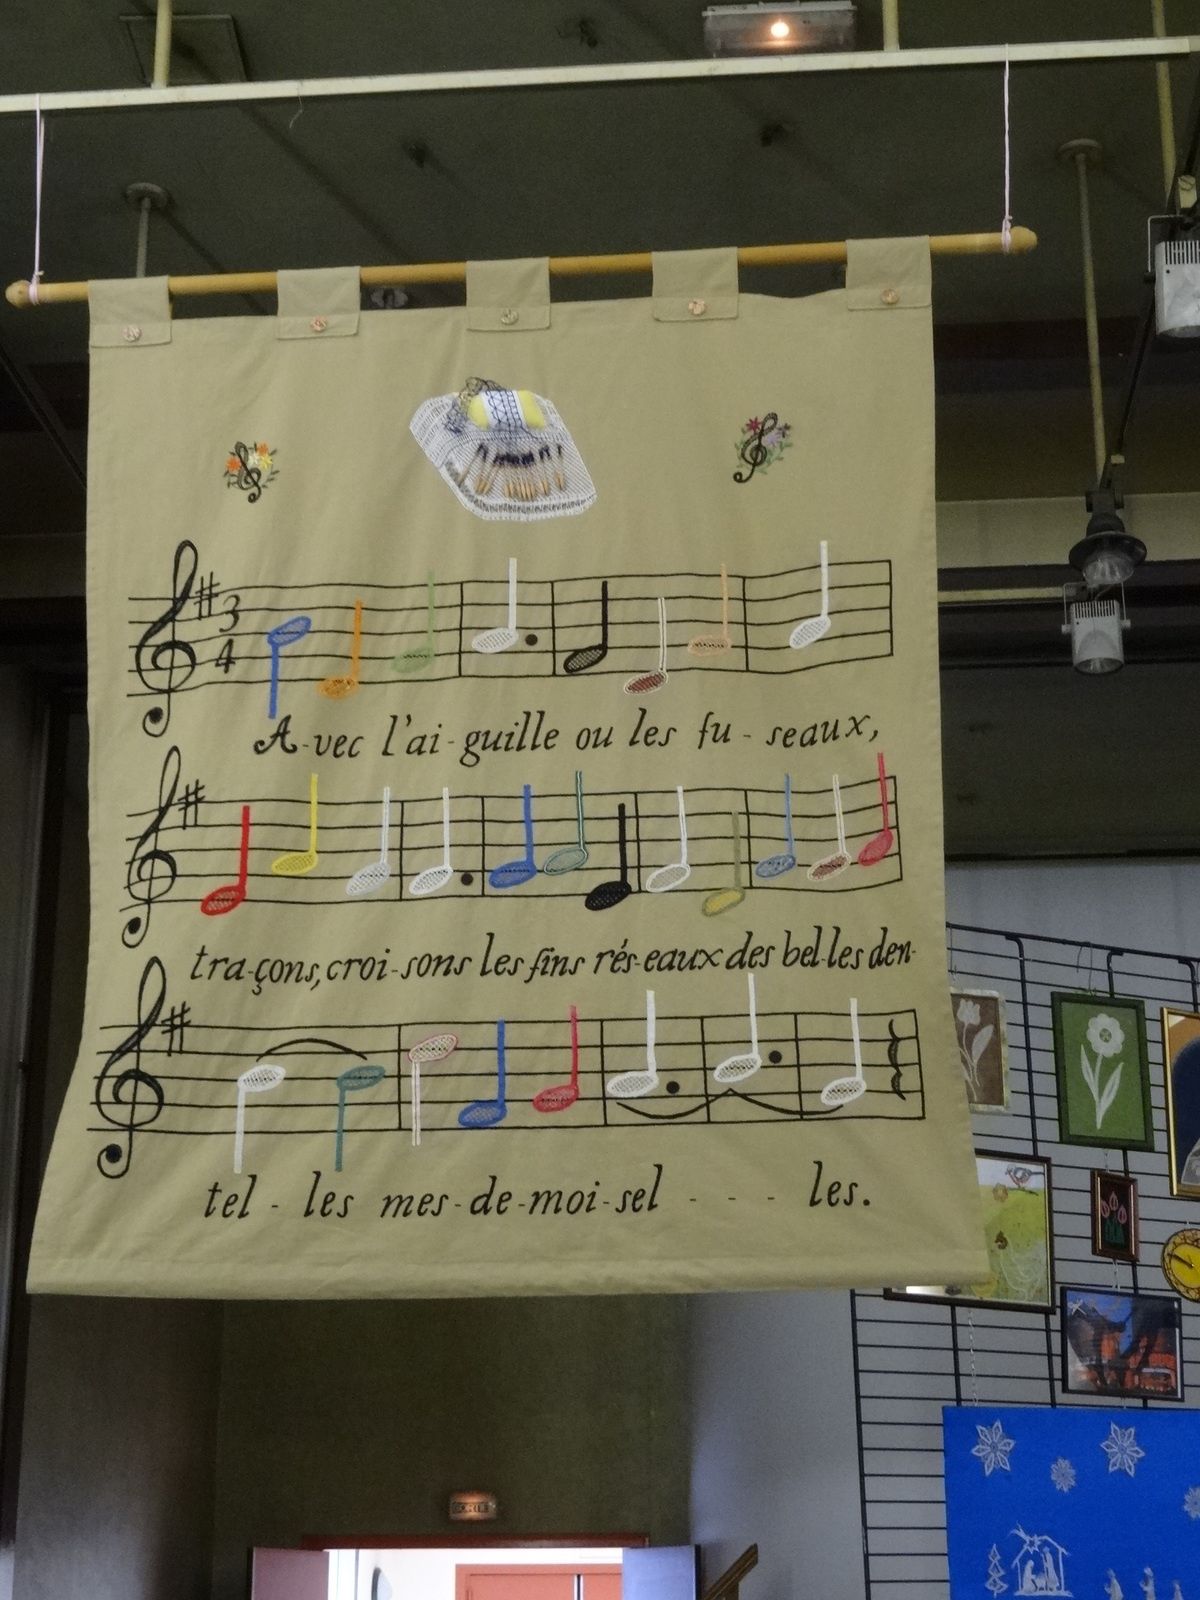 3
4
A-vec l'ai-guille ou les fu-seaux,
tra-çons, croi-sons les fins rés-eaux des bel-les den-
tel-les mes-de-moi-sel - - - les.
SORTIE